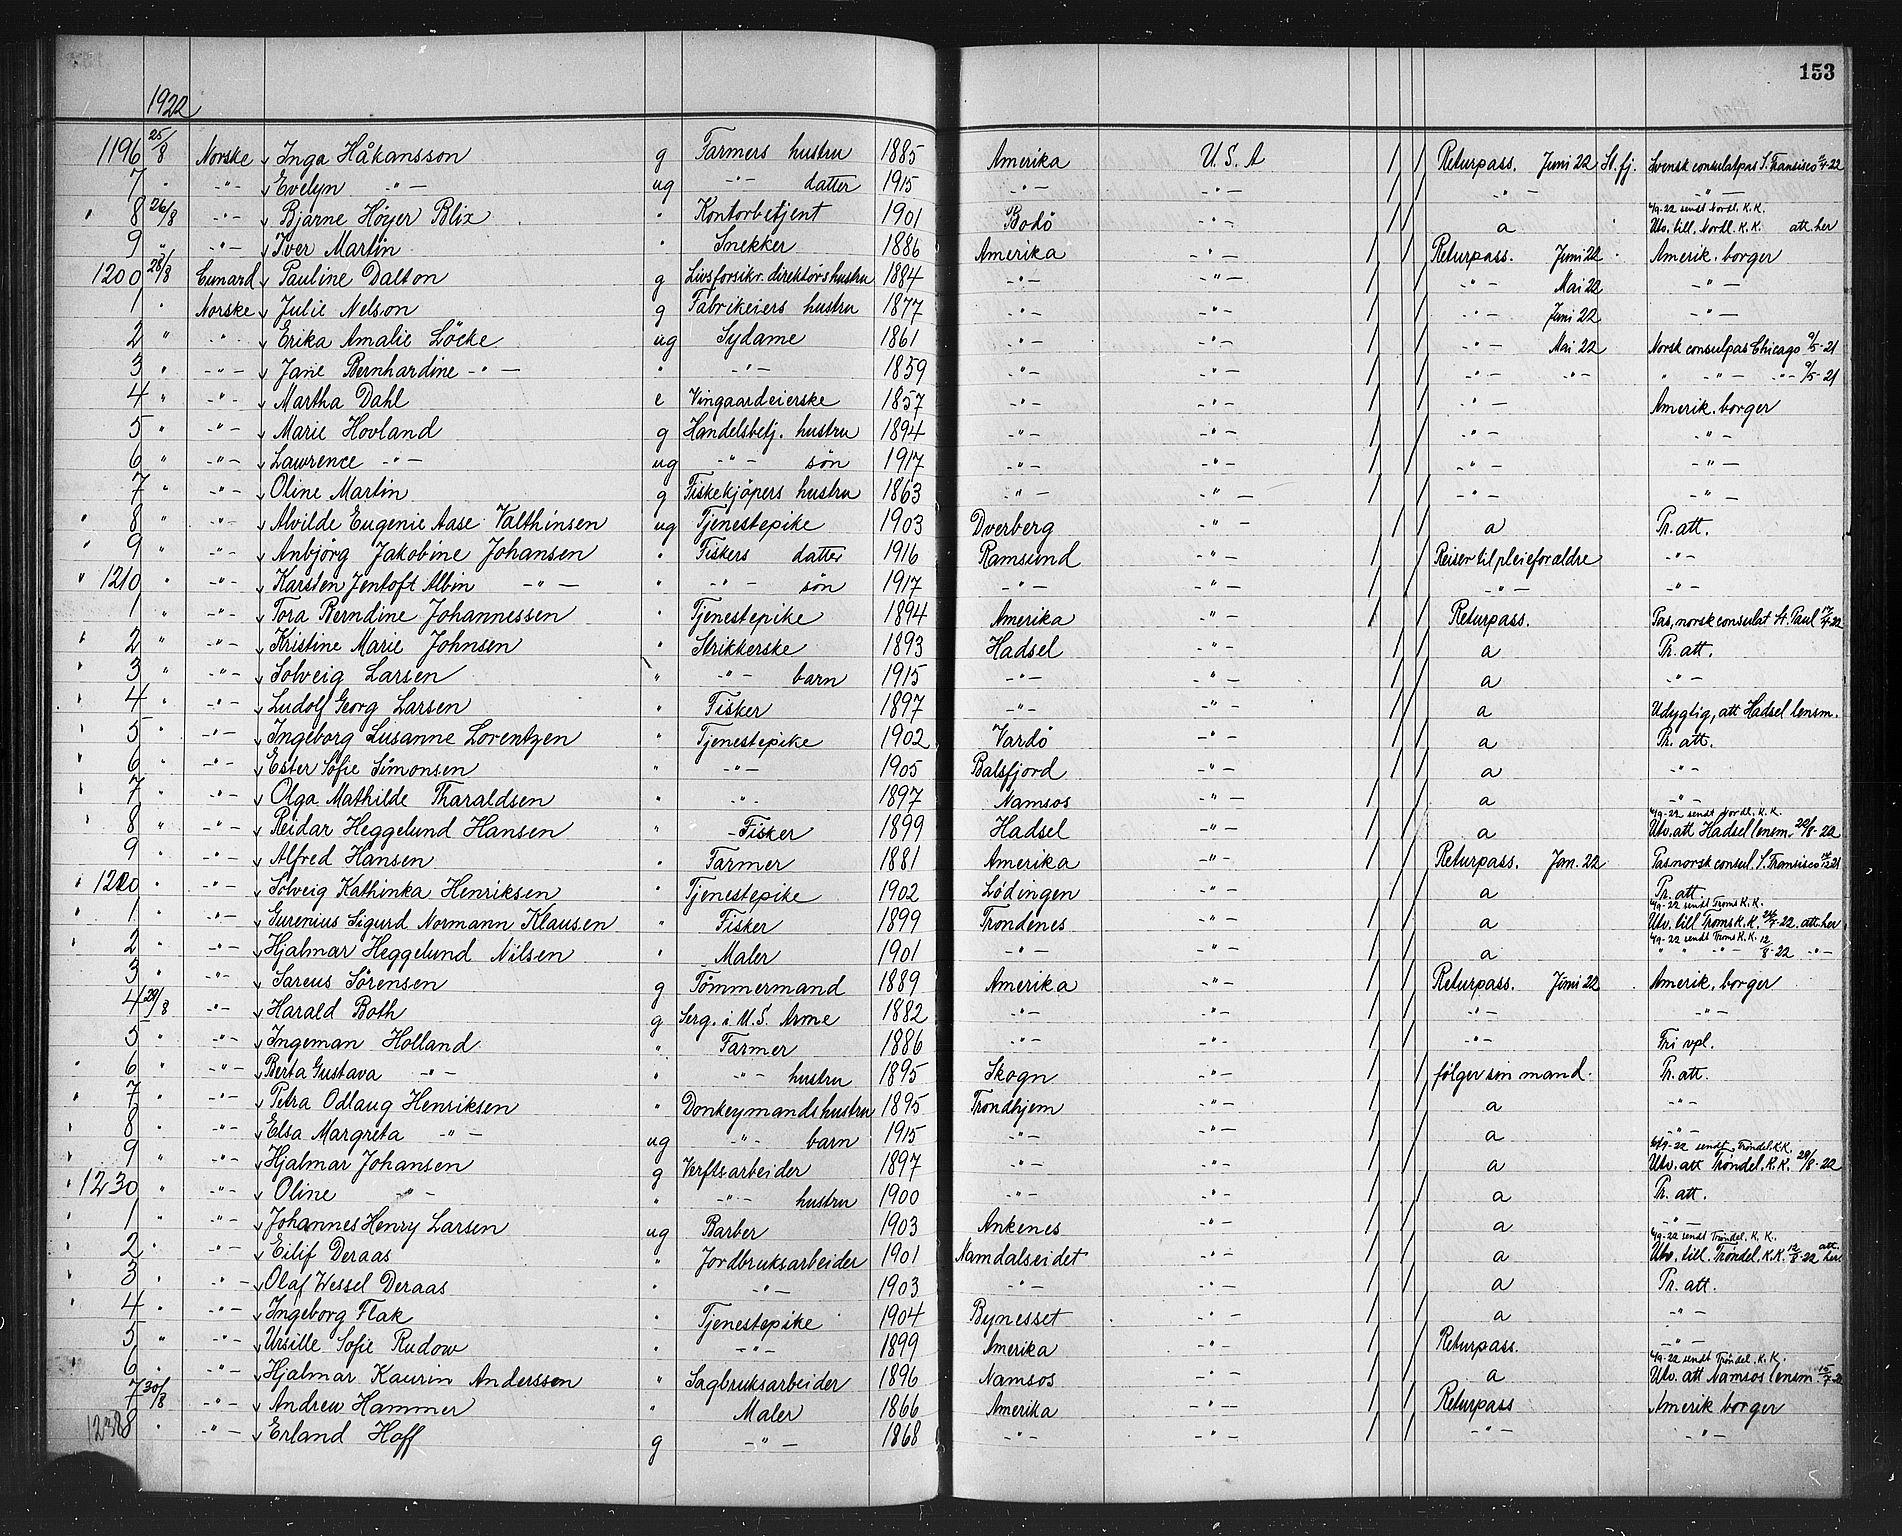 153
1922
1196 25/8 Norske Inga Håkansson g Farmers hustru 1885 Amerika U.S.A Returpass. Juni 22 St. fj. Svensk consulatpas S. Fransisco 2/4-22
7 " -"- Evelyn -"- ug -"- datter 1915 -"- -"- -"- -"-
8 26/8 -"- Bjarne Höyer Blix " Kontorbetjent 1901 Bodö -"- a 4/9-22 sendt Nordl. K.K. Utv. till. Nordl. K.K. att. her
9 " -"- Iver Martin " Snekker 1886 Amerika -"- Returpass. Juni 22 " Amerik. borger
1200 28/8 Cunard Pauline Dalton g Livsforsikr. direktörs hustru 1884 -"- -"- -"- Mai 22 -"-
1 " Norske Julie Nelson g Fabrikeiers hustru 1877 -"- -"- -"- Juni 22 -"-
2 " -"- Erika Amalie Löcke ug Sydame 1861 -"- -"- -"- Mai 22 Norsk consulpas Chicago 9/5-21
3 " -"- Jane Bernhardine -"- " -"- 1859 -"- -"- -"- -"- " -"- -"- 9/5-21
4 " -"- Martha Dahl e Vingaardeierske 1857 -"- -"- -"- Amerik. borger
5 " -"- Marie Hovland g Handelsbetj. hustru 1894 -"- -"- -"- -"-
6 " -"- Lawrence -"- ug -"- sön 1917 -"- -"- -"- -"-
7 " -"- Oline Martin g Fiskekjöpers hustru 1863 -"- -"- -"- -"-
8 " -"- Alvilde Eugenie Aase Valthinsen ug Tjenestepike 1903 Dverberg -"- a Pr. att.
9 " -"- Anbjörg Jakobine Johansen " Fiskers datter 1916 Ramsund -"- Reiser til pleieforældre -"-
1210 " -"- Karsten Jentoft Albin -"- " -"- sön 1917 -"- -"- -"- -"-
1 " -"- Tora Berndine Johannessen " Tjenestepike 1894 Amerika -"- Returpass. Pas, norsk consulat St. Paul 17/4-22
2 " -"- Kristine Marie Johnsen " Strikkerske 1893 Hadsel -"- a Pr. att.
3 " -"- Solveig Larsen " -"- barn 1915 -"- -"- a -"-
4 " -"- Ludolf Georg Larsen " Fisker 1897 -"- -"- a Udygtig, att Hadsel lensm.
5 " -"- Ingeborg Susanne Lorentzen " Tjenestepike 1902 Vardö -"- a Pr. att.
6 " -"- Ester Sofie Simonsen " -"- 1905 Balsfjord -"- a -"-
7 " -"- Olga Mathilde Tharaldsen " -"- 1897 Namsos -"- a -"-
8 " -"- Reidar Heggelund Hansen " Fisker 1899 Hadsel -"- a 4/9-22 sendt Nordl. K.K. Utv. att Hadsel lensm. 22/8-22
9 " -"- Alfred Hansen " Farmer 1881 Amerika -"- Returpass. Jan. 22 Pas norsk consul. S. Fransisco 14/12 21
1220 " -"- Solveig Kathinka Henriksen " Tjenestepike 1902 Lödingen -"- a Pr. att.
1 " -"- Gurenius Sigurd Normann Klausen " Fisker 1899 Trondenes -"- a 4/9-22 sendt Troms K.K. Utv. till Troms K.K. 24/7-22. att. her
2 " -"- Hjalmar Heggelund Nilsen " Maler 1901 -"- -"- a 4/9-22 sendt Troms K.K. " " -"- 12/8-22 -"-
3 " -"- Sareus Sörensen g Tömmermand 1889 Amerika -"- Returpass. Juni 22 Amerik. borger
4 29/8 -"- Harald Both g Serg. i U.S. Arme 1882 -"- -"- -"- -"-
5 " -"- Ingeman Holland " Farmer 1886 -"- -"- -"- Fri vpl.
6 " -"- Berta Gustava -"- " -"- hustru 1895 Skogn -"- fölger sin mand. Pr. att.
7 " -"- Petra Odlaug Henriksen " Donkeymands hustru 1895 Trondhjem -"- a -"-
8 " -"- Elsa Margreta -"- ug -"- barn 1915 -"- -"- a -"-
9 " -"- Hjalmar Johansen g Verftsarbeider 1897 -"- -"- a 4/9-22 sendt Tröndel. K.K. Utv. att Tröndel. K.K. 29/8-22
1230 " -"- Oline -"- " -"- hustru 1900 -"- -"- a Pr. att.
1 " -"- Johannes Henry Larsen ug Barber 1903 Ankenes -"- a -"-
2 " -"- Eilif Deraas " Jordbruksarbeider 1901 Namdalseidet -"- a 4/9-22 sendt Tröndel. K.K. Utv. till. Tröndel. K.K. 12/8-22 att. her
3 " -"- Olaf Wessel Deraas " -"- 1903 -"- -"- a Pr. att.
4 " -"- Ingeborg Flak " Tjenestepike 1904 Bynesset -"- a -"-
5 " -"- Ursille Sofie Rudow " -"- 1899 Amerika -"- Returpass. -"-
6 " -"- Hjalmar Kaurin Anderssen " Sagbruksarbeider 1896 Namsos -"- a 4/9-22 sendt Tröndel. K.K. Utv. att Namsos lensm 15/7-22
7 30/8 -"- Andrew Hammer " Maler 1866 Amerika -"- Returpass Amerik borger
1238 " -"- Erland Hoff g -"- 1868 -"- -"- -"- -"-